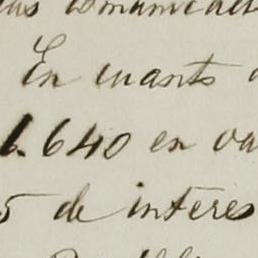 En cuanto
6.640 en va
5 de interes